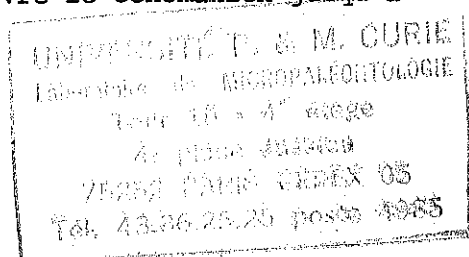 UNIVERSITÉ P. & M. CURIE
Laboratoire de MICROPALÉONTOLOGIE
4e étage
4, place Jussieu
75252 PARIS CEDEX 05
Tél. 43.36.25.25 poste